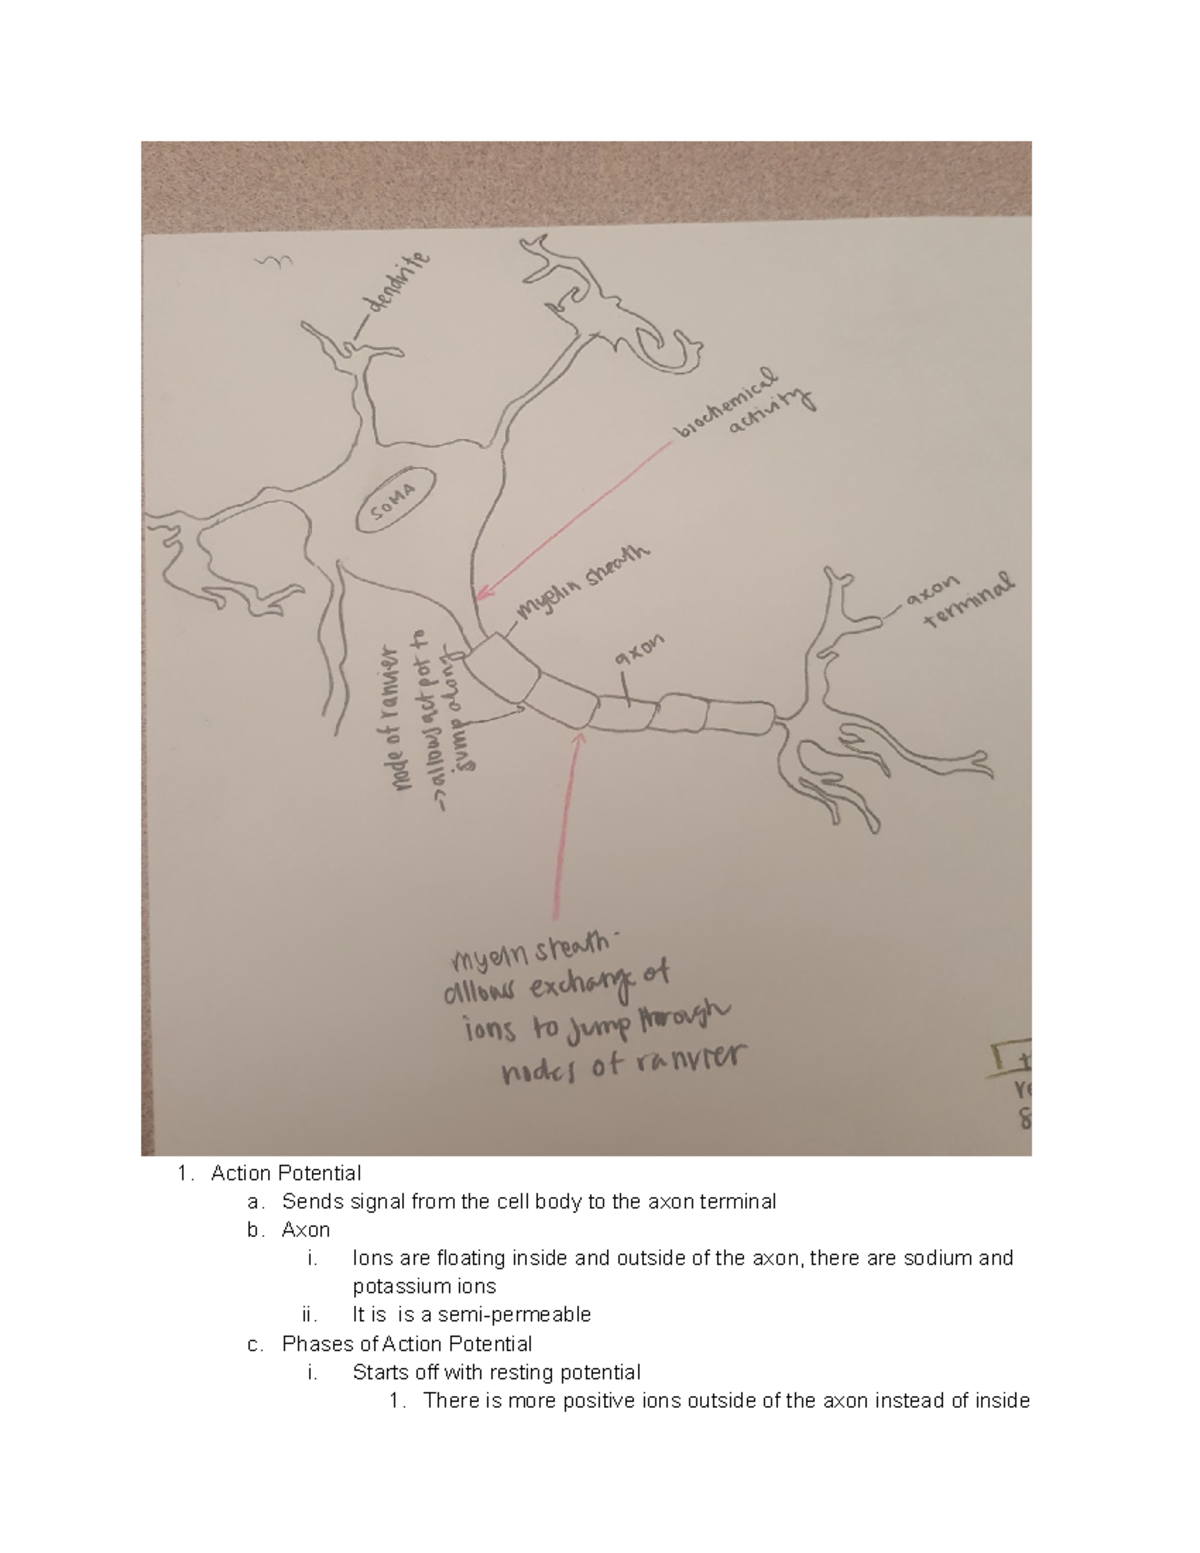 dendrite
biochemical
activity
SOMA
myelin sheath
axon
terminal
axon
node of ranvier
->allows act pot to
jump along
myeln sheath-
allows exchange of
ions to jump through
nodes of ranvier
1. Action Potential
a. Sends signal from the cell body to the axon terminal
b. Axon
i. Ions are floating inside and outside of the axon, there are sodium and
potassium ions
ii. It is is a semi-permeable
c. Phases of Action Potential
i. Starts off with resting potential
1. There is more positive ions outside of the axon instead of inside